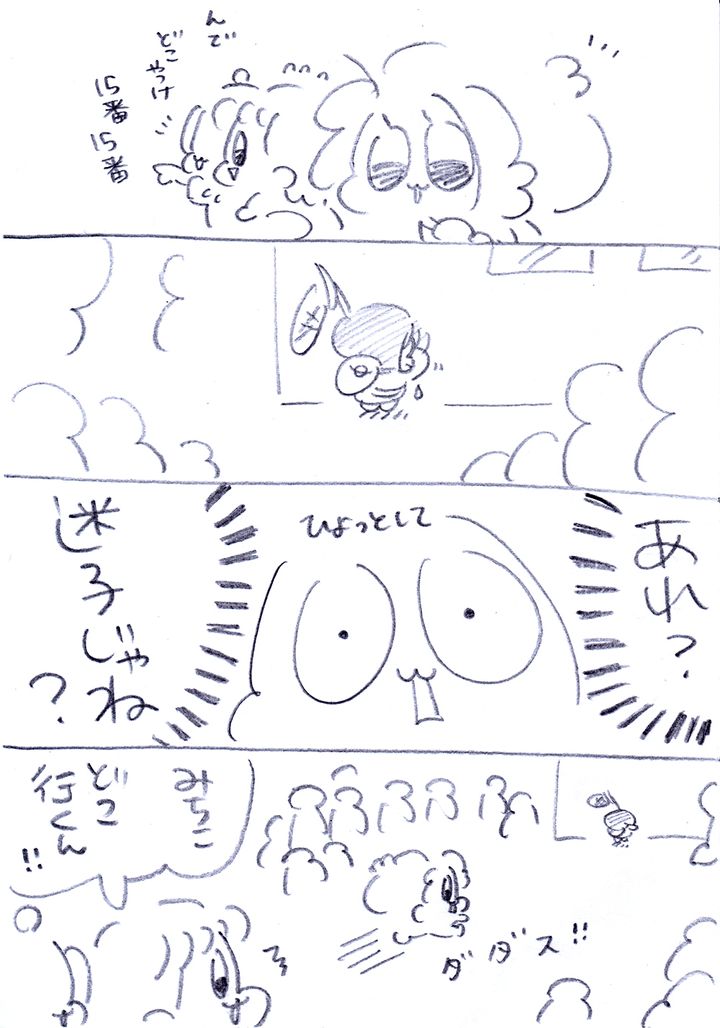 んで
どこやっけ
15番
15番
あれ?
ひょっとして
迷子じゃね?
みちこ
どこ
行くん!!
ダダダス!!